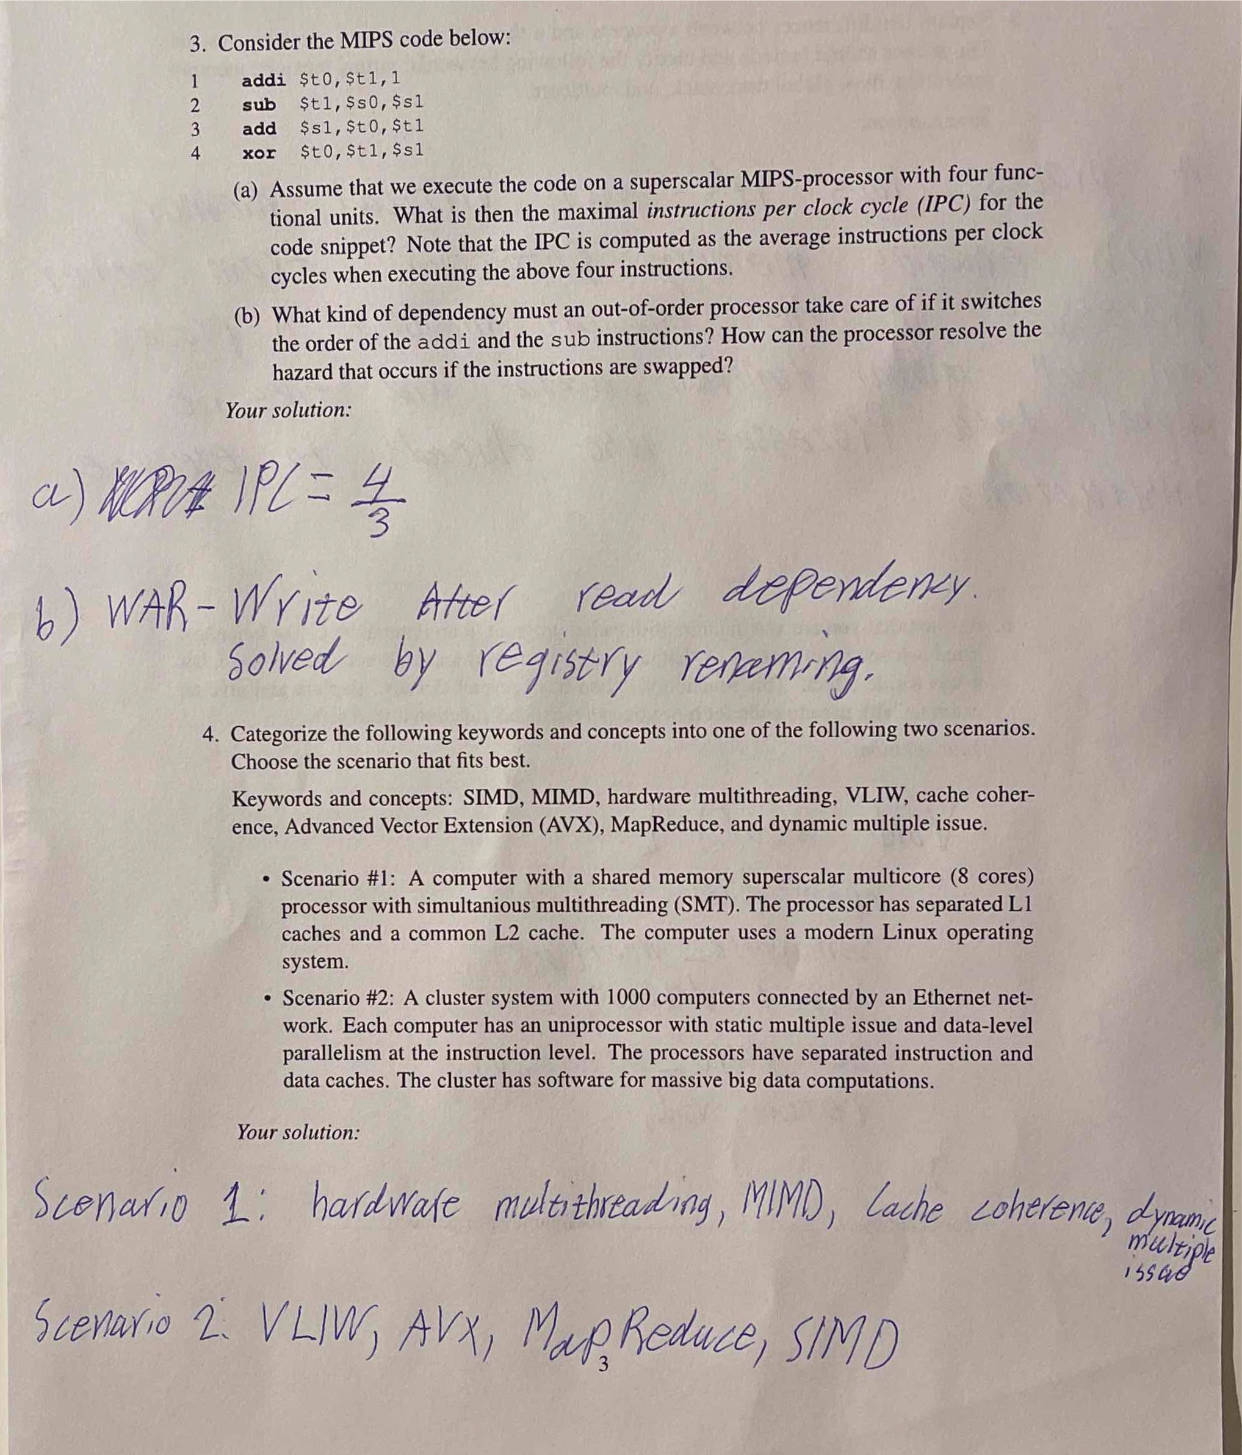 3. Consider the MIPS code below:
1 addi $t0,$t1,1
2 sub $t1,$s0,$s1
3 add $s1,$t0,$t1
4 xor $t0,$t1,$s1
(a) Assume that we execute the code on a superscalar MIPS-processor with four func-
tional units. What is then the maximal instructions per clock cycle (IPC) for the
code snippet? Note that the IPC is computed as the average instructions per clock
cycles when executing the above four instructions.
(b) What kind of dependency must an out-of-order processor take care of if it switches
the order of the addi and the sub instructions? How can the processor resolve the
hazard that occurs if the instructions are swapped?
Your solution:
a) IPC = 4/3
b) WAR - Write After read dependency.
Solved by registry renaming.
4. Categorize the following keywords and concepts into one of the following two scenarios.
Choose the scenario that fits best.
Keywords and concepts: SIMD, MIMD, hardware multithreading, VLIW, cache coher-
ence, Advanced Vector Extension (AVX), MapReduce, and dynamic multiple issue.
• Scenario #1: A computer with a shared memory superscalar multicore (8 cores)
processor with simultanious multithreading (SMT). The processor has separated L1
caches and a common L2 cache. The computer uses a modern Linux operating
system.
• Scenario #2: A cluster system with 1000 computers connected by an Ethernet net-
work. Each computer has an uniprocessor with static multiple issue and data-level
parallelism at the instruction level. The processors have separated instruction and
data caches. The cluster has software for massive big data computations.
Your solution:
Scenario 1: hardware multithreading, MIMD, Cache coherence, dynamic
multiple
issue
Scenario 2: VLIW, AVX, MapReduce, SIMD
3